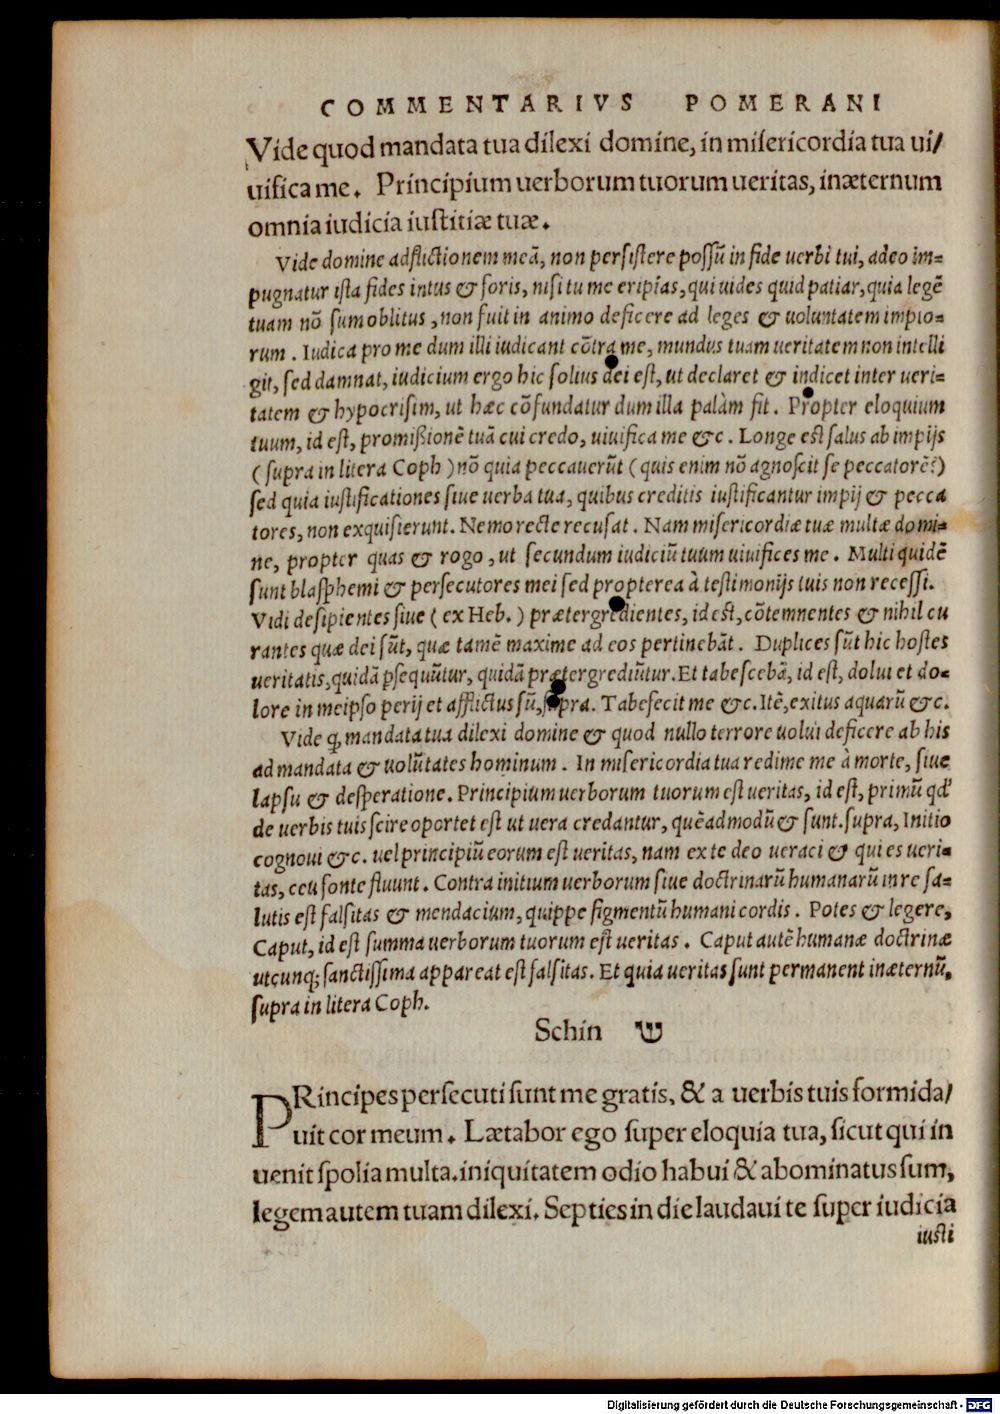 COMMENTARIVS POMERANI
Vide quod mandata tua dilexi domine, in misericordia tua ui/
uifica me. Principium uerborum tuorum ueritas, inæternum
omnia iudicia iustitiæ tuæ.
Vide domine adflictionem meā, non persistere possū in fide uerbi tui, adeo im=
pugnatur ista fides intus & foris, nisi tu me eripias, qui uides quid patiar, quia legē
tuam nō sum oblitus, non fuit in animo deficere ad leges & uoluntatem impio=
rum. Iudica pro me dum illi iudicant cōtra me, mundus tuam ueritatem non intelli
git, sed damnat, iudicium ergo hic solius dei est, ut declaret & indicet inter ueri=
tatem & hypocrisim, ut hæc cōfundatur dum illa palàm fit. Propter eloquium
tuum, id est, promißionē tuā cui credo, uiuifica me &c. Longe est salus ab impijs
(supra in litera Coph) nō quia peccauerūt (quis enim nō agnoscit se peccatorē?)
sed quia iustificationes siue uerba tua, quibus creditis iustificantur impij & pecca
tores, non exquisierunt. Nemo recte recusat. Nam misericordiæ tuæ multæ domi=
ne, propter quas & rogo, ut secundum iudiciū tuum uiuifices me. Multi quidē
sunt blasphemi & persecutores mei sed propterea à testimonijs tuis non recessi.
Vidi desipientes siue (ex Heb.) prætergredientes, id est, cōtemnentes & nihil cu
rantes quæ dei sūt, quæ tamē maxime ad eos pertinebāt. Duplices sūt hic hostes
ueritatis, quidā ꝑsequūtur, quidā prætergrediūtur. Et tabescebā, id est, dolui et do=
lore in meipso perij et afflictus sū, supra. Tabefecit me &c. Itē, exitus aquarū &c.
Vide ꝙ mandata tua dilexi domine & quod nullo terrore uolui deficere ab his
ad mandata & uolūtates hominum. In misericordia tua redime me à morte, siue
lapsu & desperatione. Principium uerborum tuorum est ueritas, id est, primū qd'
de uerbis tuis scire oportet est ut uera credantur, quēadmodū & sunt. supra, Initio
cognoui &c. uel principiū eorum est ueritas, nam ex te deo ueraci & qui es ueri=
tas, ceu fonte fluunt. Contra initium uerborum siue doctrinarū humanarū in re sa=
lutis est falsitas & mendacium, quippe figmentū humani cordis. Potes & legere,
Caput, id est summa uerborum tuorum est ueritas. Caput autē humanæ doctrinæ
utcunq; sanctissima appareat est falsitas. Et quia ueritas sunt permanent inæternū,
supra in litera Coph.
Schin ש
PRincipes persecuti sunt me gratis, & a uerbis tuis formida/
uit cor meum. Lætabor ego super eloquia tua, sicut qui in
uenit spolia multa. iniquitatem odio habui & abominatus sum,
legem autem tuam dilexi. Septies in die laudaui te super iudicia
iusti
Digitalisierung gefördert durch die Deutsche Forschungsgemeinschaft - DFG